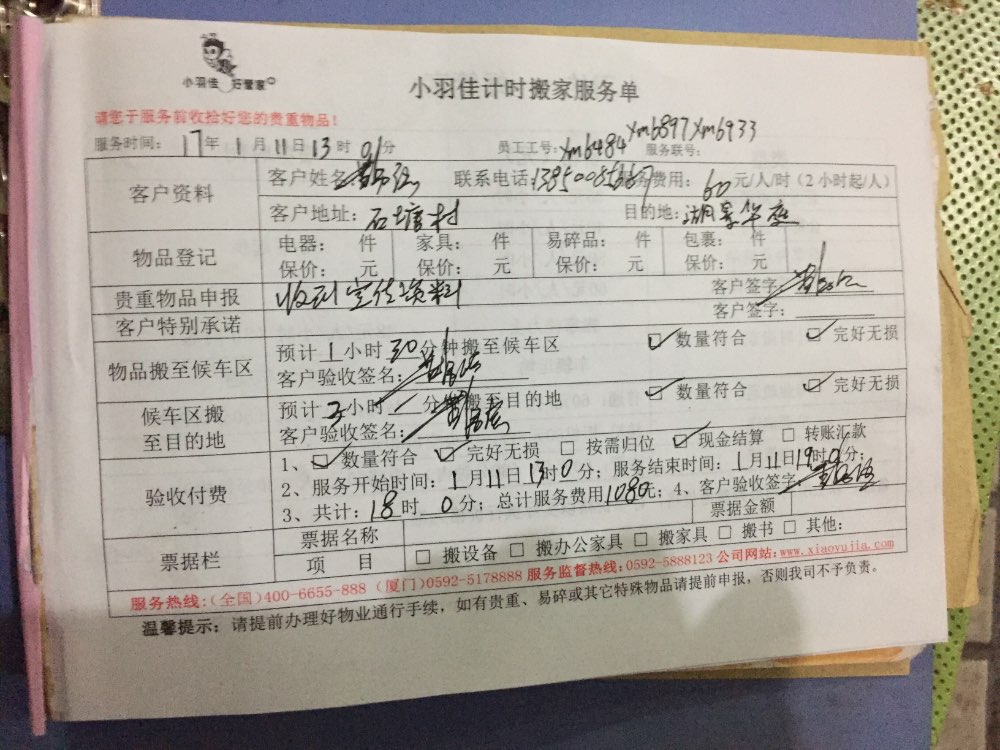 小羽佳 好管家
小羽佳计时搬家服务单
请您于服务前收拾好您的贵重物品！
服务时间： 17 年 1 月 11 日 13 时 0 分 员工工号： xm6484 xm6897 xm6933 服务联号：
客户资料 客户姓名 联系电话： 服务费用： 60 元/人/时（2小时起/人）
客户地址： 石塘村 目的地： 湖景华庭
物品登记 电器： 件 家具： 件 易碎品： 件 包裹： 件
保价： 元 保价： 元 保价： 元 保价： 元
贵重物品申报 收到宣传资料 客户签字：
客户特别承诺 客户签字：
物品搬至候车区 预计 1 小时 30 分钟搬至候车区 ☑ 数量符合 ☑ 完好无损
客户验收签名：
候车区搬至目的地 预计 小时 分钟搬至目的地 ☑ 数量符合 ☑ 完好无损
客户验收签名：
验收付费 1、☑ 数量符合 ☑ 完好无损 □ 按需归位 ☑ 现金结算 □ 转账汇款
2、服务开始时间： 1 月 11 日 13 时 0 分；服务结束时间： 1 月 11 日 19 时 0 分；
3、共计： 18 时 0 分；总计服务费用 1080 元；4、客户验收签字
票据栏 票据名称 票据金额
项 目 □ 搬设备 □ 搬办公家具 □ 搬家具 □ 搬书 □ 其他：
服务热线：(全国)400-6655-888 (厦门)0592-5178888 服务监督热线：0592-5888123 公司网站：www.xiaoyujia.com
温馨提示：请提前办理好物业通行手续，如有贵重、易碎或其它特殊物品请提前申报，否则我司不予负责。